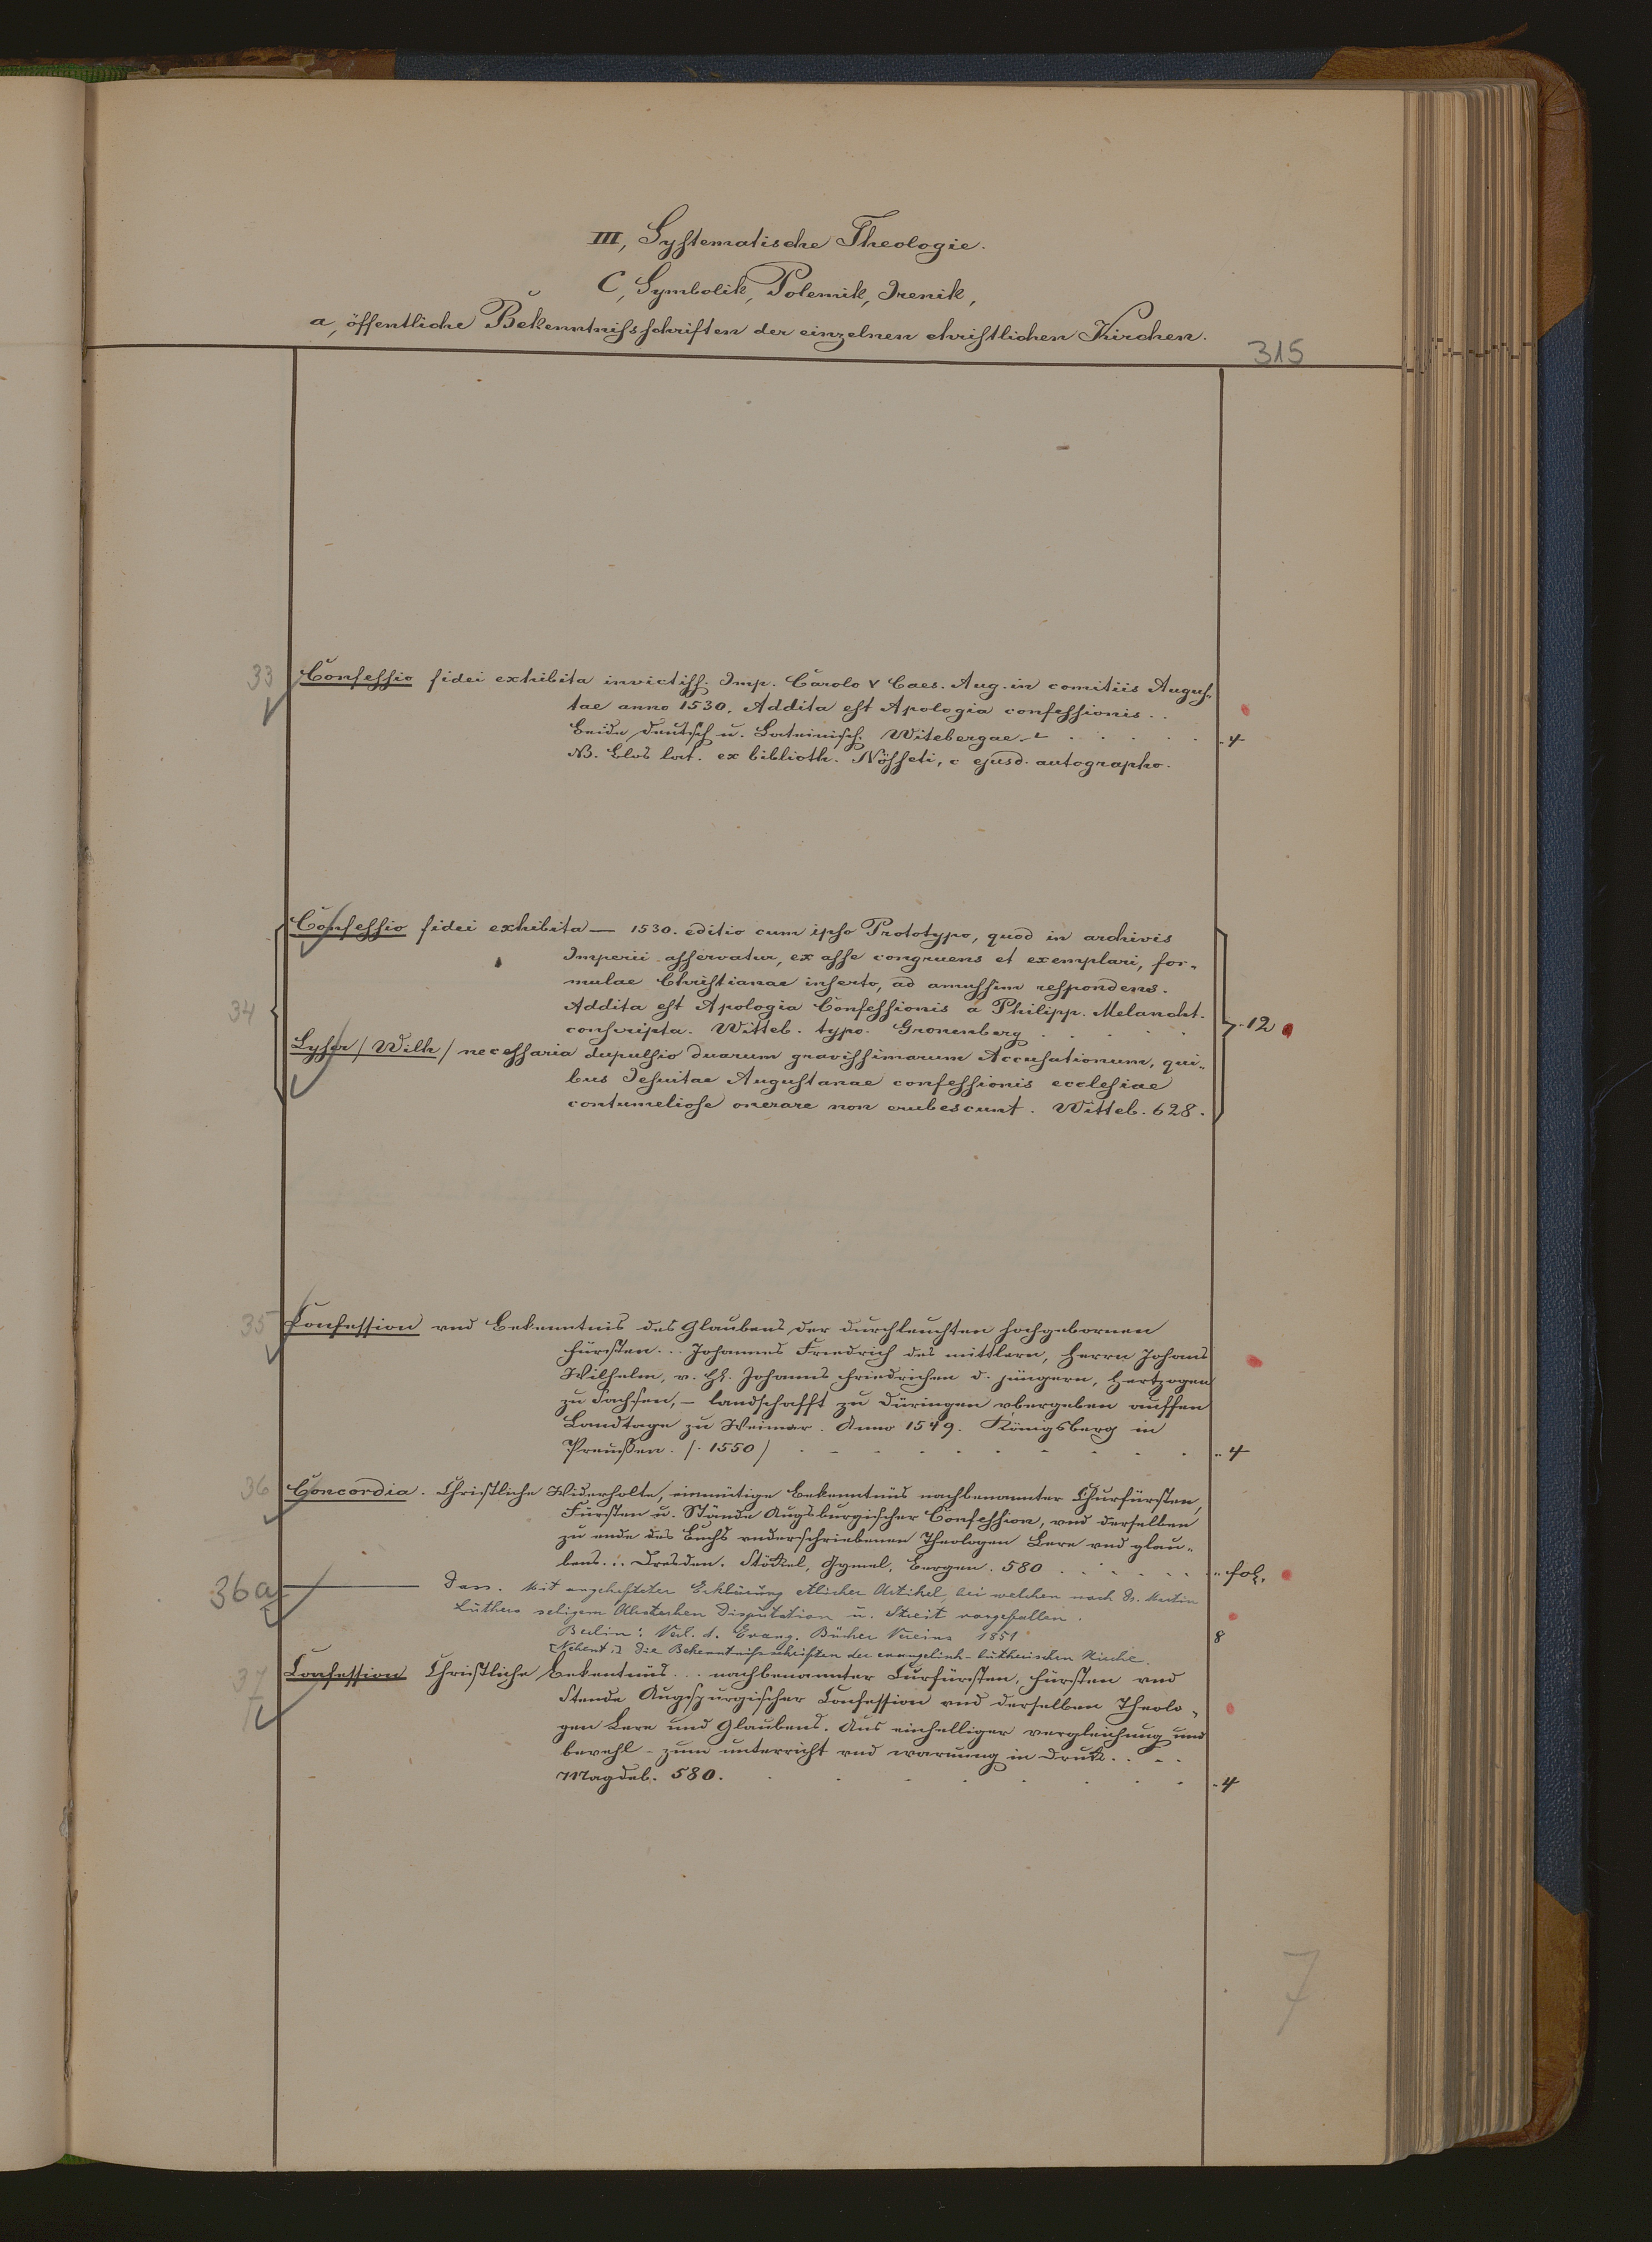 III, Systematische Theologie.
C, Symbolik, Polemik, Irenik,
a, öffentliche Bekenntnissschriften der einzelnen christlichen Kirchen.
315
33 Confessio fidei exhibita invictiss. Imp. Carolo V Caes. Aug. in comitiis Augus-
tae anno 1530. Addita est Apologia confessionis . .
Beide Deutsch u. Lateinisch. Witebergae. . . . . . 4
NB. Blos lat. ex biblioth. Nösseti, c ejusd. autographo.
Confessio fidei exhibita — 1530. editio cum ipso Prototypo, quod in archivis
Imperii asservatur, ex asse congruens et exemplari, for-
mulae Christianae inserto, ad amussim respondens.
34 Addita est Apologia Confessionis a Philipp. Melancht.
conscripta. Witteb. typo. Gronenberg . . . 12
Lyser / Wilh / necessaria depulsio duarum gravissimarum Accusationum, qui-
bus Jesuitae Augustanae confessionis ecclesiae
contumeliose onerare non erubescunt. Witteb. 628.
35 Confession vnd Bekenntnis des Glaubens der durchleuchten hochgebornen
fürsten . . . Johannes Friedrich des mittlern, Herrn Johans
Wilhelm, v. H. Johanns friedrichen d. jüngern, Hertzogen
zu Sachsen, – landschafft zu Düringen vbergeben auffen
Landtage zu Weimar. Anno 1549. Königsberg in
Preußen. /. 1550/ . . . . . . . 4
36 Concordia. Christliche Widerholte, einmütige Bekenntnüs nachbenannter Churfürsten,
Fürsten u. Stände Augsburgischer Confession, vnd derselben
zu ende des Buchs vnderschriebenen Theologen Lere vnd glau-
bens . . . Dresden. Stöckel, Gymel, Bergen. 580 . . . . . . fol.
36a ——— Dass. Mit angehefteter Erklärung etlicher Artikel, bei welchen nach Dr. Martin
Luthers seligem Absterben Disputation u. Streit vorgefallen.
Berlin: Verl. d. Evang. Bücher Vereins 1851 8
[Nebent.:] Die Bekenntnissschriften der evangelisch-lutherischen Kirche.
37 Confession Christliche Bekentnüs . . . nachbenannter Curfürsten, fürsten vnd
Stende Augspurgischer Confession vnd derselben Theolo-
gen Lere und Glaubens. Aus einhelliger vergleichung und
bevehl – zum unterricht vnd warnung in Druck . . – .
Magdeb. 580. . . . . . . . . 4
7